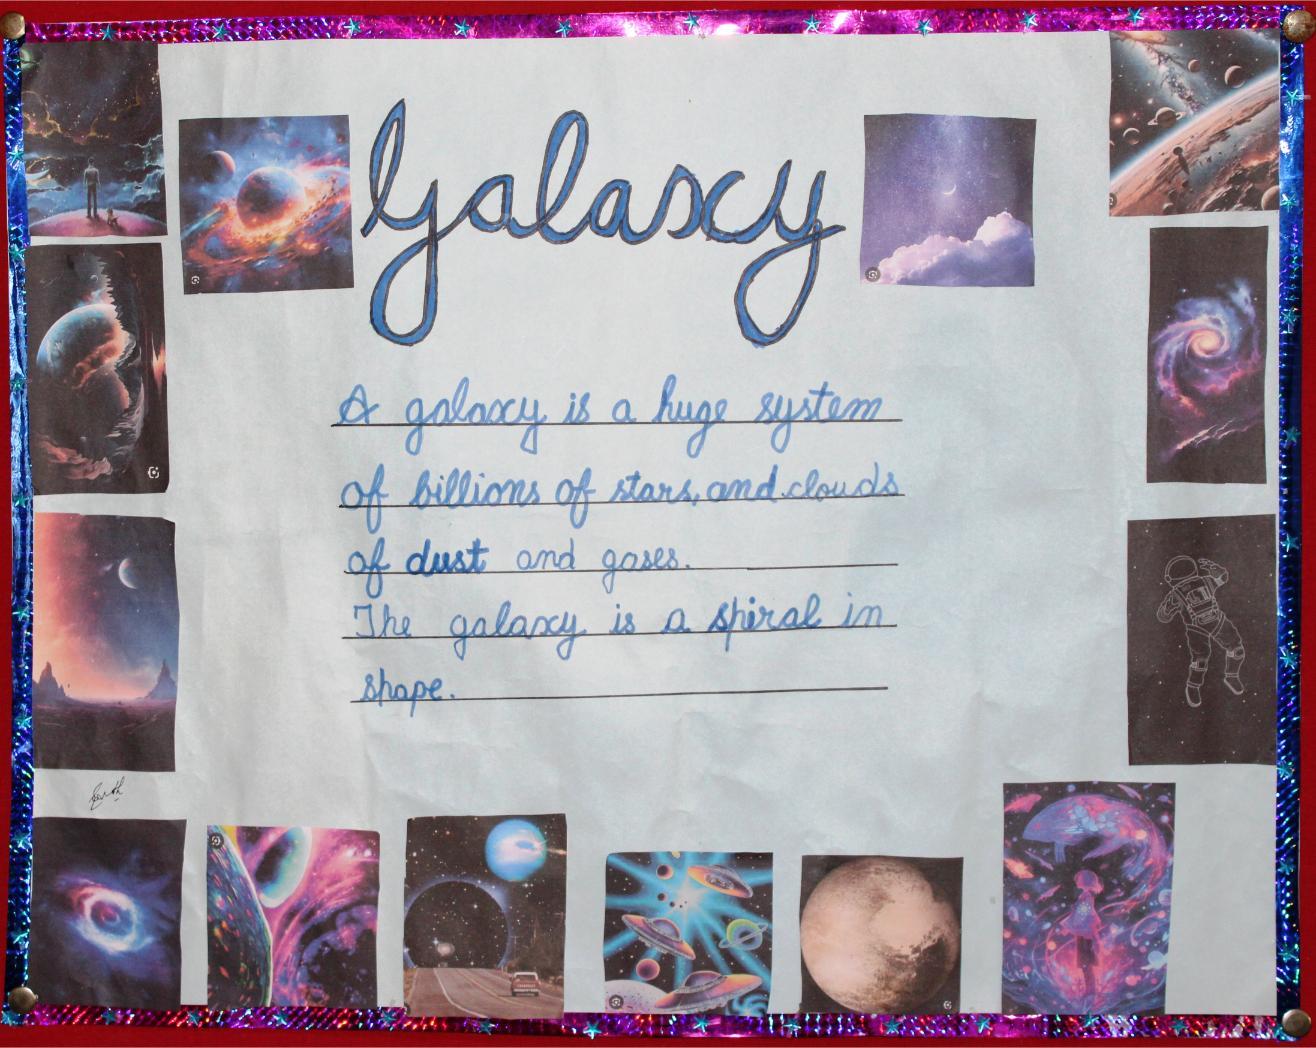 Galaxy
A galaxy is a huge system
of billions of stars, and clouds
of dust and gases.
The galaxy is a spiral in
shape.